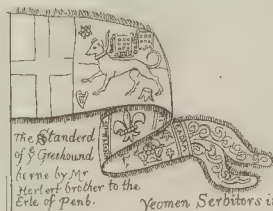 The Standerd
of yᵉ Greyhound
borne by Mr
Herbert brother to the
Erle of Penb.
Yeomen Serbitors i